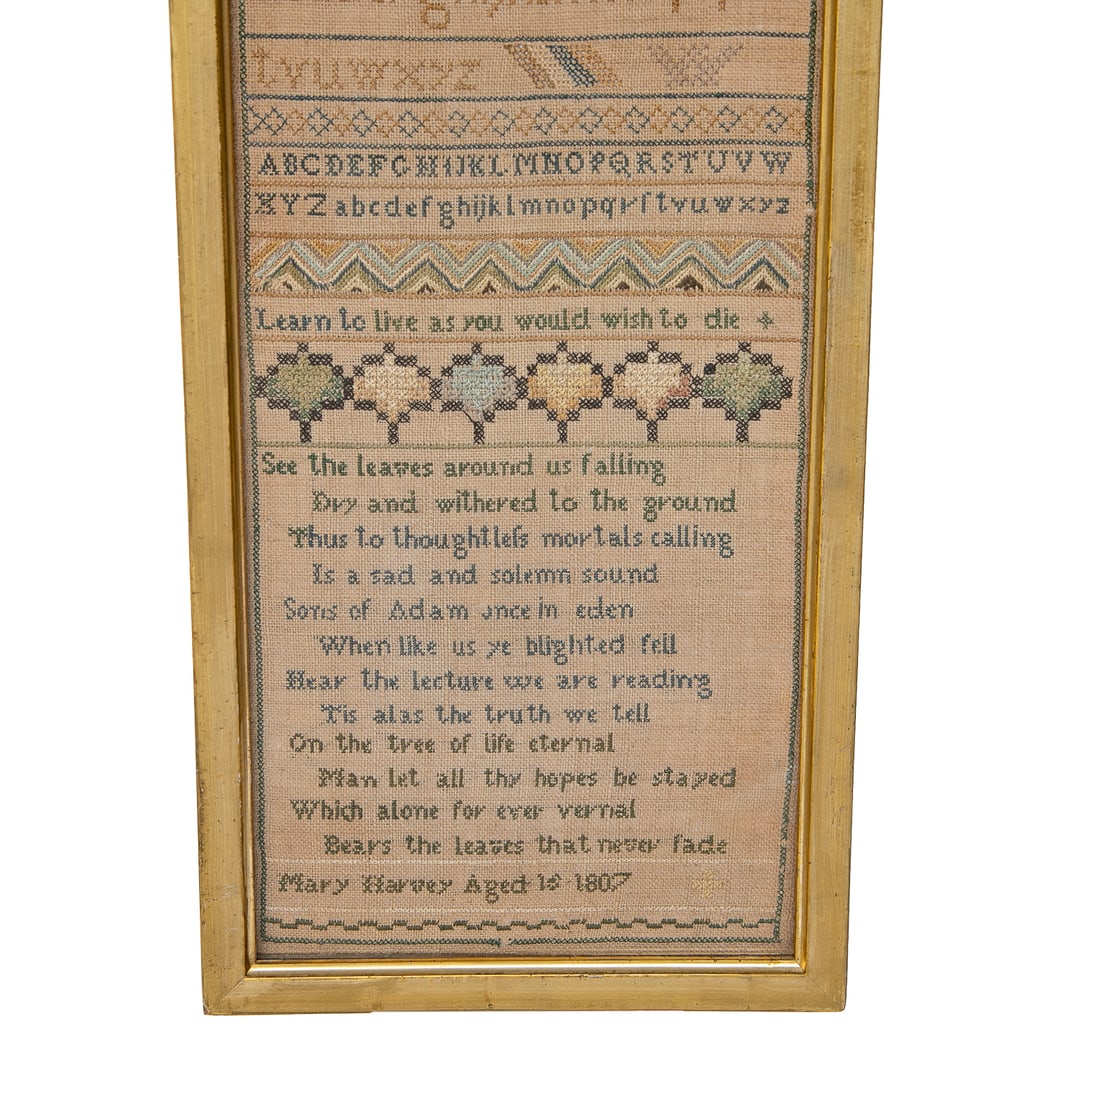 t v u w x y z
ABCDEFGHIJKLMNOPQRSTUVW
XYZ abcdefghijklmnopqrſtvuwxyz
Learn to live as you would wish to die
See the leaves around us falling
Dry and withered to the ground
Thus to thoughtleſs mortals calling
Is a sad and solemn sound
Sons of Adam once in eden
When like us ye blighted fell
Hear the lecture we are reading
Tis alas the truth we tell
On the tree of life eternal
Man let all thy hopes be stayed
Which alone for ever vernal
Bears the leaves that never fade
Mary Harvey Aged 1807